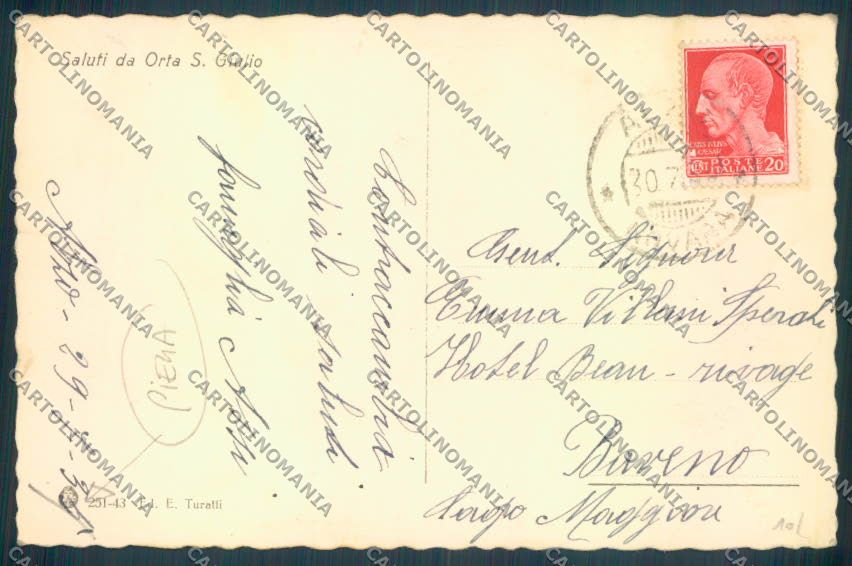 Saluti da Orta S. Giulio
Contraccambia
cordiali saluti
famiglia
PIEGA
251-43 Ed. E. Turatti
CAIVS IVLIVS
CAESAR
POSTE
ITALIANE
CENT
20
30.7
Gent. Signora
Emma Villani Sperati
Hotel Beau-rivage
Baveno
Lago Maggiore
10L
CARTOLINOMANIA